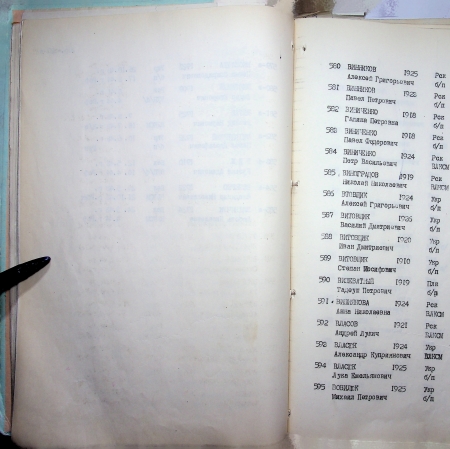 580 ВИННИКОВ 1925 Рск
Алексей Григорьевич б/п
581 ВИННИКОВ 1922 Рск
Павел Петрович б/п
582 ВИНИЧЕНКО 1918 Рск
Галина Петровна б/п
583 ВИНИЧЕНКО 1918 Рск
Павел Федорович б/п
584 ВИНИЧЕНКО 1924 Рск
Петр Васильевич ВЛКСМ
585 ВИНОГРАДОВ 1919 Рск
Николай Николаевич ВЛКСМ
586 1924 Укр
Алексей Григорьевич б/п
587 ВИТОВЩИК Укр
Василий Дмитриевич б/п
588 ВИТОВЩИК 1920 Укр
Иван Дмитриевич б/п
589 ВИТОВЩИК 1910 Укр
Степан б/п
590 1919
Тадеуш Петрович б/п
591 1924 Рск
Анна Николаевна ВЛКСМ
592 ВЛАСОВ 1921 Рск
Андрей Лукич ВЛКСМ
593 ВЛАСЮК 1924 Укр
Александр Куприянович ВЛКСМ
594 ВЛАСЮК 1925 Укр
Лука Емельянович б/п
595 1925 Укр
Михаил Петрович б/п